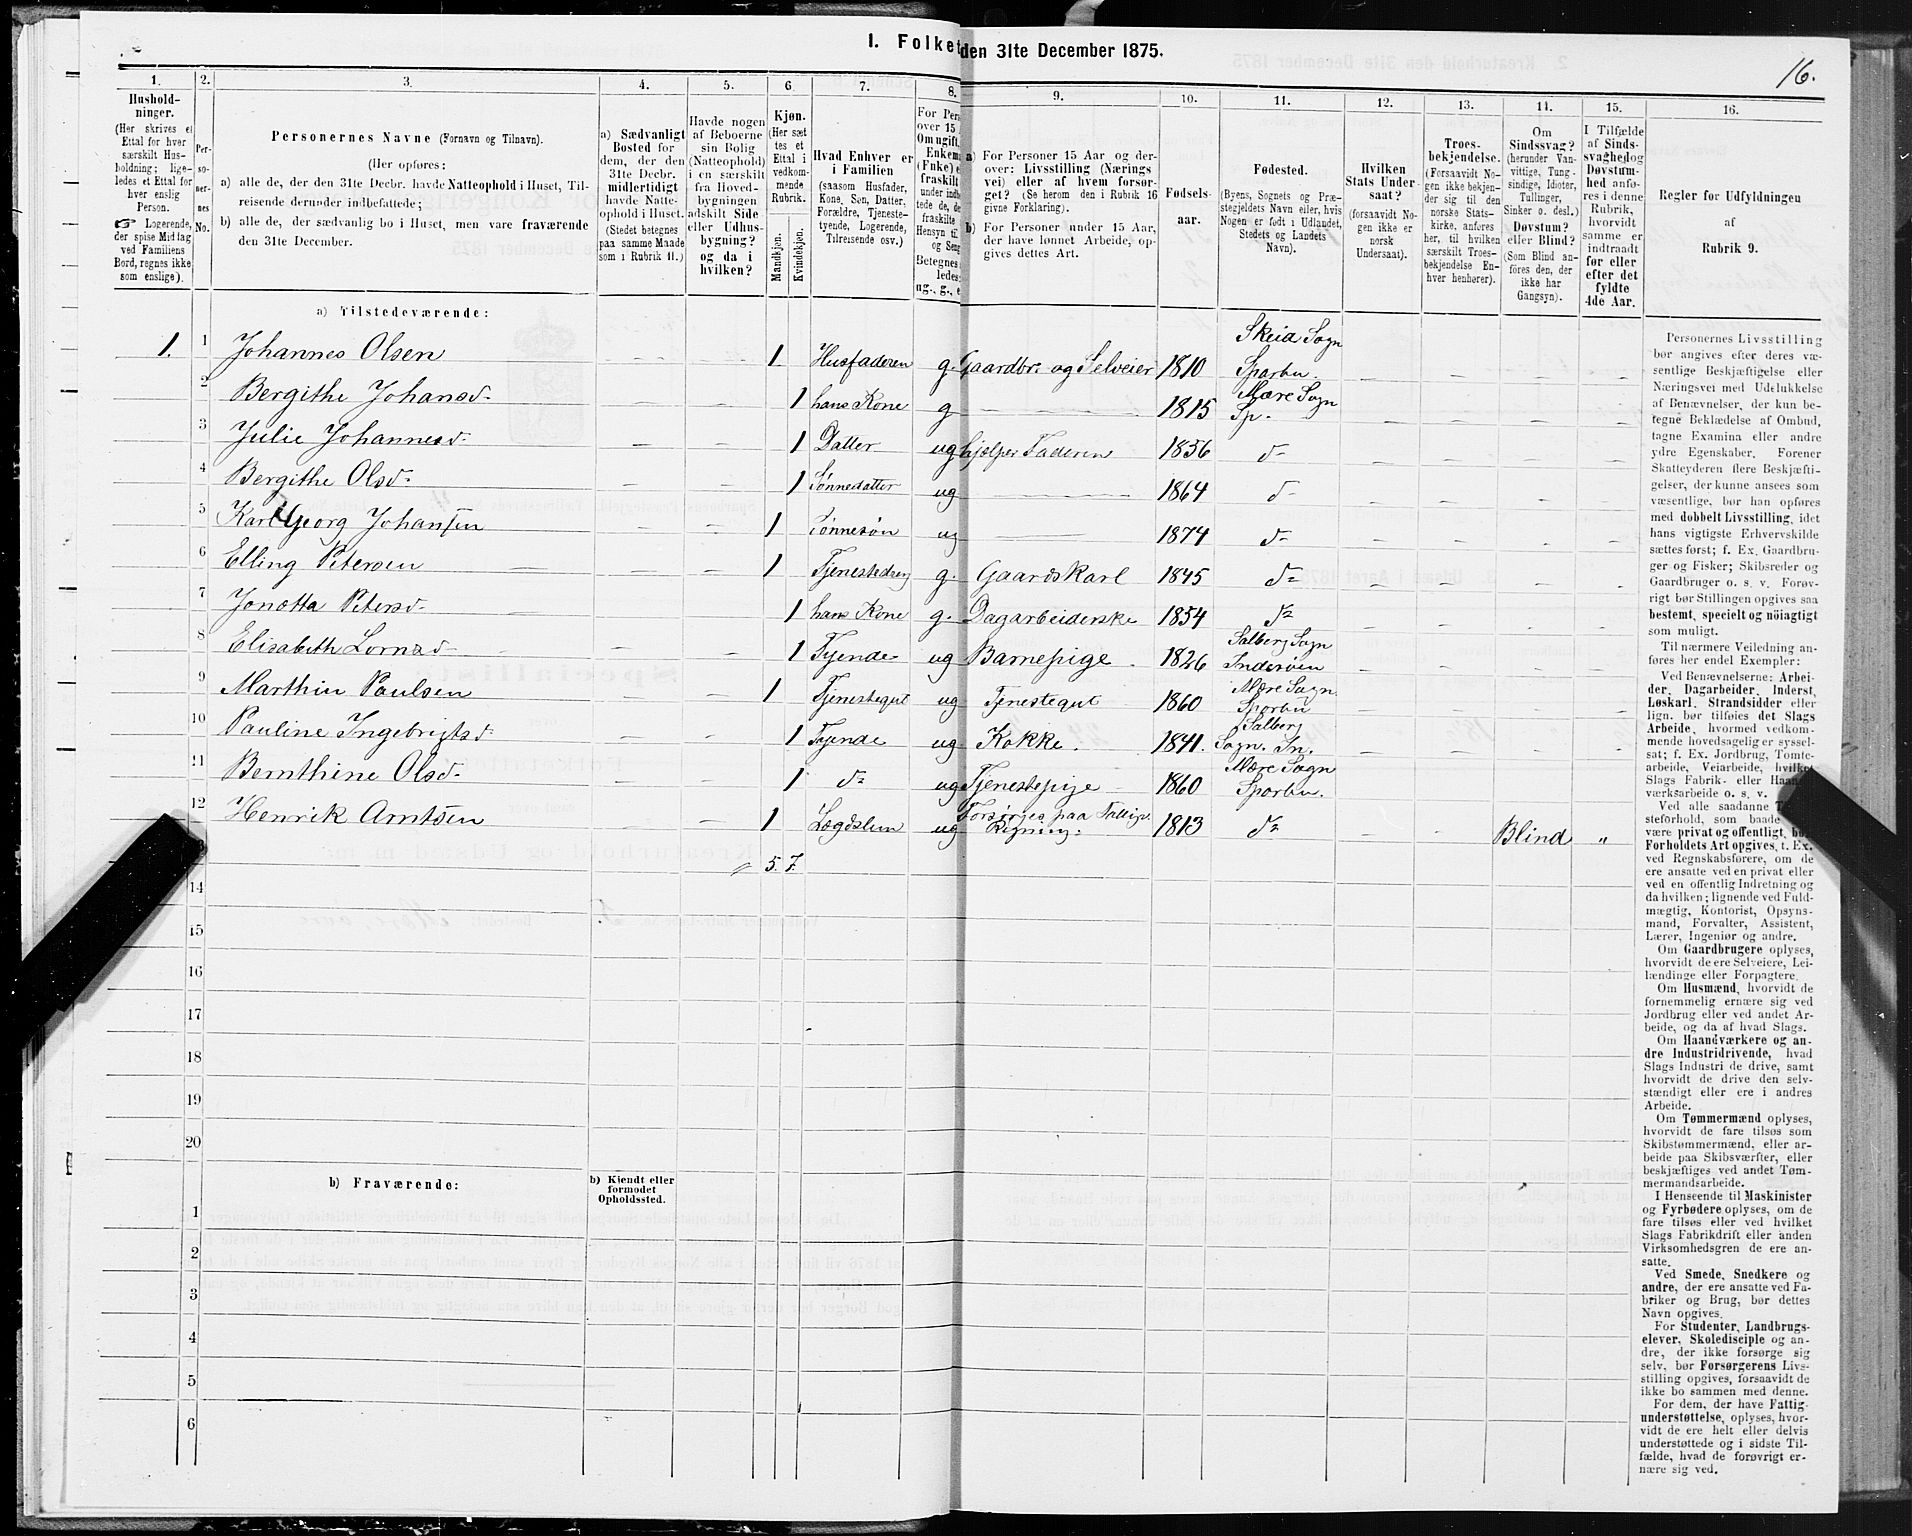 1. Folket den 31te December 1875.
16.
1. 2. 3. 4. 5. 6. 7. 8. 9. 10. 11. 12. 13. 14. 15. 16.
Hushold-
ninger.
(Her skrives et
Ettal for hver
særskilt Hus-
holdning; lige-
ledes et Ettal for
hver enslig
Person.
☞ Logerende,
der spise Middag
ved Familiens
Bord, regnes ikke
som enslige).
Per-
so-
ner-
nes
No.
Personernes Navne (Fornavn og Tilnavn).
(Her opføres:
a) alle de, der den 31te Decbr. havde Natteophold i Huset, Til-
reisende derunder indbefattede;
b) alle de, der sædvanlig bo i Huset, men vare fraværende
den 31te December.
a) Sædvanligt
Bosted for
dem, der den
31te Decbr.
midlertidigt
havde Natte-
ophold i Huset.
(Stedet betegnes
paa samme Maade
som i Rubrik 11.)
Havde nogen
af Beboerne
sin Bolig
(Natteophold)
i en særskilt
fra Hoved-
bygningen
adskilt Side
eller Udhus-
bygning?
og da i
hvilken?
Kjøn.
(Her sæt-
tes et
Ettal i
vedkom-
mende
Rubrik.
Mandkjøn.
Kvindekjøn.
Hvad Enhver er
i Familien
(saasom Husfader,
Kone, Søn, Datter,
Forældre, Tjeneste-
tyende, Logerende,
Tilreisende osv.)
For Pers
over 15
Om ugift,
Enkem
(Enke) e
fraskilt
under indbe
tede de, de
fraskilte
Hensyn til
og Seng
Betegnes
ledes:
ug., g., e
a) For Personer 15 Aar og der-
over: Livsstilling (Nærings
vei) eller af hvem forsør-
get? (Se herom den i Rubrik 16
givne Forklaring).
b) For Personer under 15 Aar,
der have lønnet Arbeide, op-
gives dettes Art.
Fødsels-
aar.
Fødested.
(Byens, Sognets og Præ-
stegjeldets Navn eller, hvis
Nogen er født i Udlandet,
Stedets og Landets
Navn).
Hvilken
Stats Under-
saat?
(forsaavidt No-
gen ikke er
norsk
Undersaat).
Troes-
bekjendelse.
(Forsaavidt No-
gen ikke bekjen-
der sig til den
norske Stats-
kirke, anføres
her, til hvilken
særskilt Troes-
bekjendelse En-
hver henhører).
Om
Sindssvag?
(herunder Van-
vittige, Tung-
sindige, Idioter,
Tullinger,
Sinker o. desl.)
Døvstum?
eller Blind?
(Som Blind an-
føres den, der
ikke har
Gangsyn).
I Tilfælde
af Sinds-
svaghed og
Døvstum-
hed anfø-
res i denne
Rubrik,
hvorvidt
samme er
indtraadt
før eller
efter det
fyldte
4de Aar.
Regler for Udfyldningen
af
Rubrik 9.
a) Tilstedeværende:
1. 1 Johannes Olsen 1 Husfaderen g. Gaardbr. og Selveier 1810 Skeid Sogn Sparbu.
2 Bergithe Johansd. 1 hans Kone g 1815 Mære Sogn Sp.
3 Julie Johannesd. 1 Datter ug hjælper Faderen 1856 do
4 Bergithe Olsd. 1 Sønnedatter ug 1864 do
5 Karl Georg Johansen 1 Sønnesøn ug 1874 do
6 Elling Petersen 1 Tjenestedreng g. Gaardskarl 1845 do
7 Jonetta Petersd. 1 hans Kone g. Dagarbeiderske 1854 do
8 Elisabeth Lornsd. 1 Tyende ug Barnepige 1826 Salberg Sogn Inderøen
9 Marthin Paulsen 1 Tjenestegut ug Tjenestegut 1860 Mære Sogn Sparbu
10 Pauline Ingebrigtsd. 1 Tyende ug Kokke. 1841. Salberg Sogn. In.
11 Bernthine Olsd. 1 do ug Tjenestepige 1860 Mære Sogn Sparbu.
12 Henrik Arntsen 1 Lægdslem ug Forsørges paa Fattigv. Regning. 1813 do Blind "
5. 7.
14
15
16
17
18
19
20
b) Fraværende:
b) Kjendt eller
formodet
Opholdssted.
1
2
3
4
5
6
Personernes Livsstilling
bør angives efter deres væ-
sentlige Beskjæftigelse eller
Næringsvei med Udelukkelse
af Benævnelser, der kun be-
tegne Beklædelse af Ombud,
tagne Examina eller andre
ydre Egenskaber. Forener
Skatteyderen flere Beskjæfti-
gelser, der kunne ansees som
væsentlige, bør han opføres
med dobbelt Livsstilling, idet
hans vigtigste Erhvervskilde
sættes først; f. Ex. Gaardbru-
ger og Fisker; Skibsreder og
Gaardbruger o. s. v. Forøv-
rigt bør Stillingen opgives saa
bestemt, specielt og nöiagtigt
som muligt.
Til nærmere Veiledning an-
føres her endel Exempler:
Ved Benævnelserne: Arbei-
der, Dagarbeider, Inderst,
Løskarl, Strandsidder eller
lign. bør tilføies det Slags
Arbeide, hvormed vedkom-
mende hovedsagelig er syssel-
sat; f. Ex. Jordbrug, Tomte-
arbeide, Veiarbeide, hvilket
Slags Fabrik- eller Haand-
værksarbeide o. s. v.
Ved alle saadanne
steforhold, som baade
være privat og offentligt, bør
Forholdets Art opgives, t. Ex.
ved Regnskabsførere, om de
ere ansatte ved en privat eller
ved en offentlig Indretning og
da hvilken; lignende ved Fuld-
mægtig, Kontorist, Opsyns-
mand, Forvalter, Assistent,
Lærer, Ingeniør og andre.
Om Gaardbrugere oplyses,
hvorvidt de ere Selveiere, Lei-
lændinge eller Forpagtere.
Om Husmænd, hvorvidt de
fornemmelig ernære sig ved
Jordbrug eller ved andet Ar-
beide, og da af hvad Slags.
Om Haandværkere og an-
dre Industridrivende, hvad
Slags Industri de drive, samt
hvorvidt de drive den selv-
stændigt eller ere i andres
Arbeide.
Om Tømmermænd oplyses,
hvorvidt de fare tilsøs som
Skibstømmermænd, eller ar-
beide paa Skibsværfter, eller
beskjæftiges ved andet Tøm-
mermandsarbeide.
I Henseende til Maskinister
og Fyrbødere oplyses, om de
fare tilsøs eller ved hvilket
Slags Fabrikdrift eller anden
Virksomhedsgren de ere an-
satte.
Ved Smede, Snedkere og
andre, der ere ansatte ved Fa-
briker og Brug, bør dettes
Navn opgives.
For Studenter, Landbrugs-
elever, Skoledisciple og an-
dre, der ikke forsørge sig
selv, bør Forsørgerens Livs-
stilling opgives, forsaavidt de
ikke bo sammen med denne.
For dem, der have Fattig-
understøttelse, oplyses, hvor-
vidt de ere helt eller delvis
understøttede og i sidste Til-
fælde, hvad de forøvrigt er-
nære sig ved.